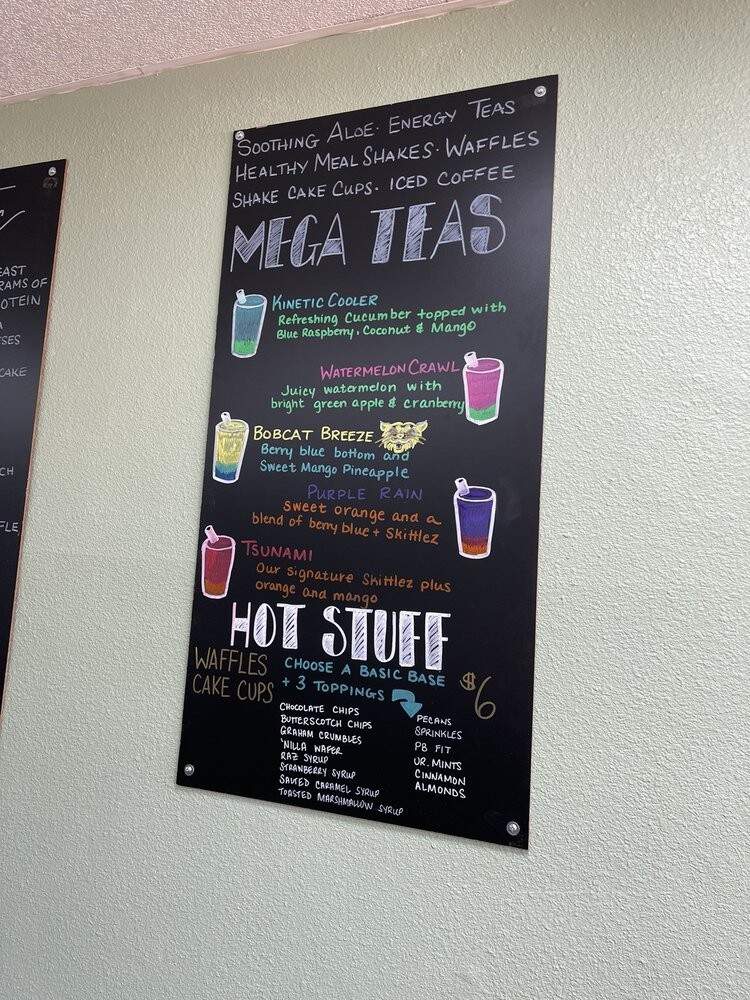 EAST
RAMS OF
OTEIN
SES
CAKE
CH
FLE,
SOOTHING ALOE · ENERGY TEAS
HEALTHY MEAL SHAKES · WAFFLES
SHAKE CAKE CUPS · ICED COFFEE
MEGA TEAS
KINETIC COOLER
Refreshing Cucumber topped with
Blue Raspberry, Coconut & Mango
WATERMELON CRAWL
Juicy watermelon with
bright green apple & cranberry
BOBCAT BREEZE
Berry blue bottom and
Sweet Mango Pineapple
PURPLE RAIN
Sweet orange and a
blend of berry blue + Skittlez
TSUNAMI
Our signature Skittlez plus
orange and mango
HOT STUFF
WAFFLES
CAKE CUPS
CHOOSE A BASIC BASE
+ 3 TOPPINGS
$6
CHOCOLATE CHIPS
BUTTERSCOTCH CHIPS
GRAHAM CRUMBLES
'NILLA WAFER
RAZ SYRUP
STRAWBERRY SYRUP
SALTED CARAMEL SYRUP
TOASTED MARSHMALLOW SYRUP
PECANS
SPRINKLES
PB FIT
UR. MINTS
CINNAMON
ALMONDS